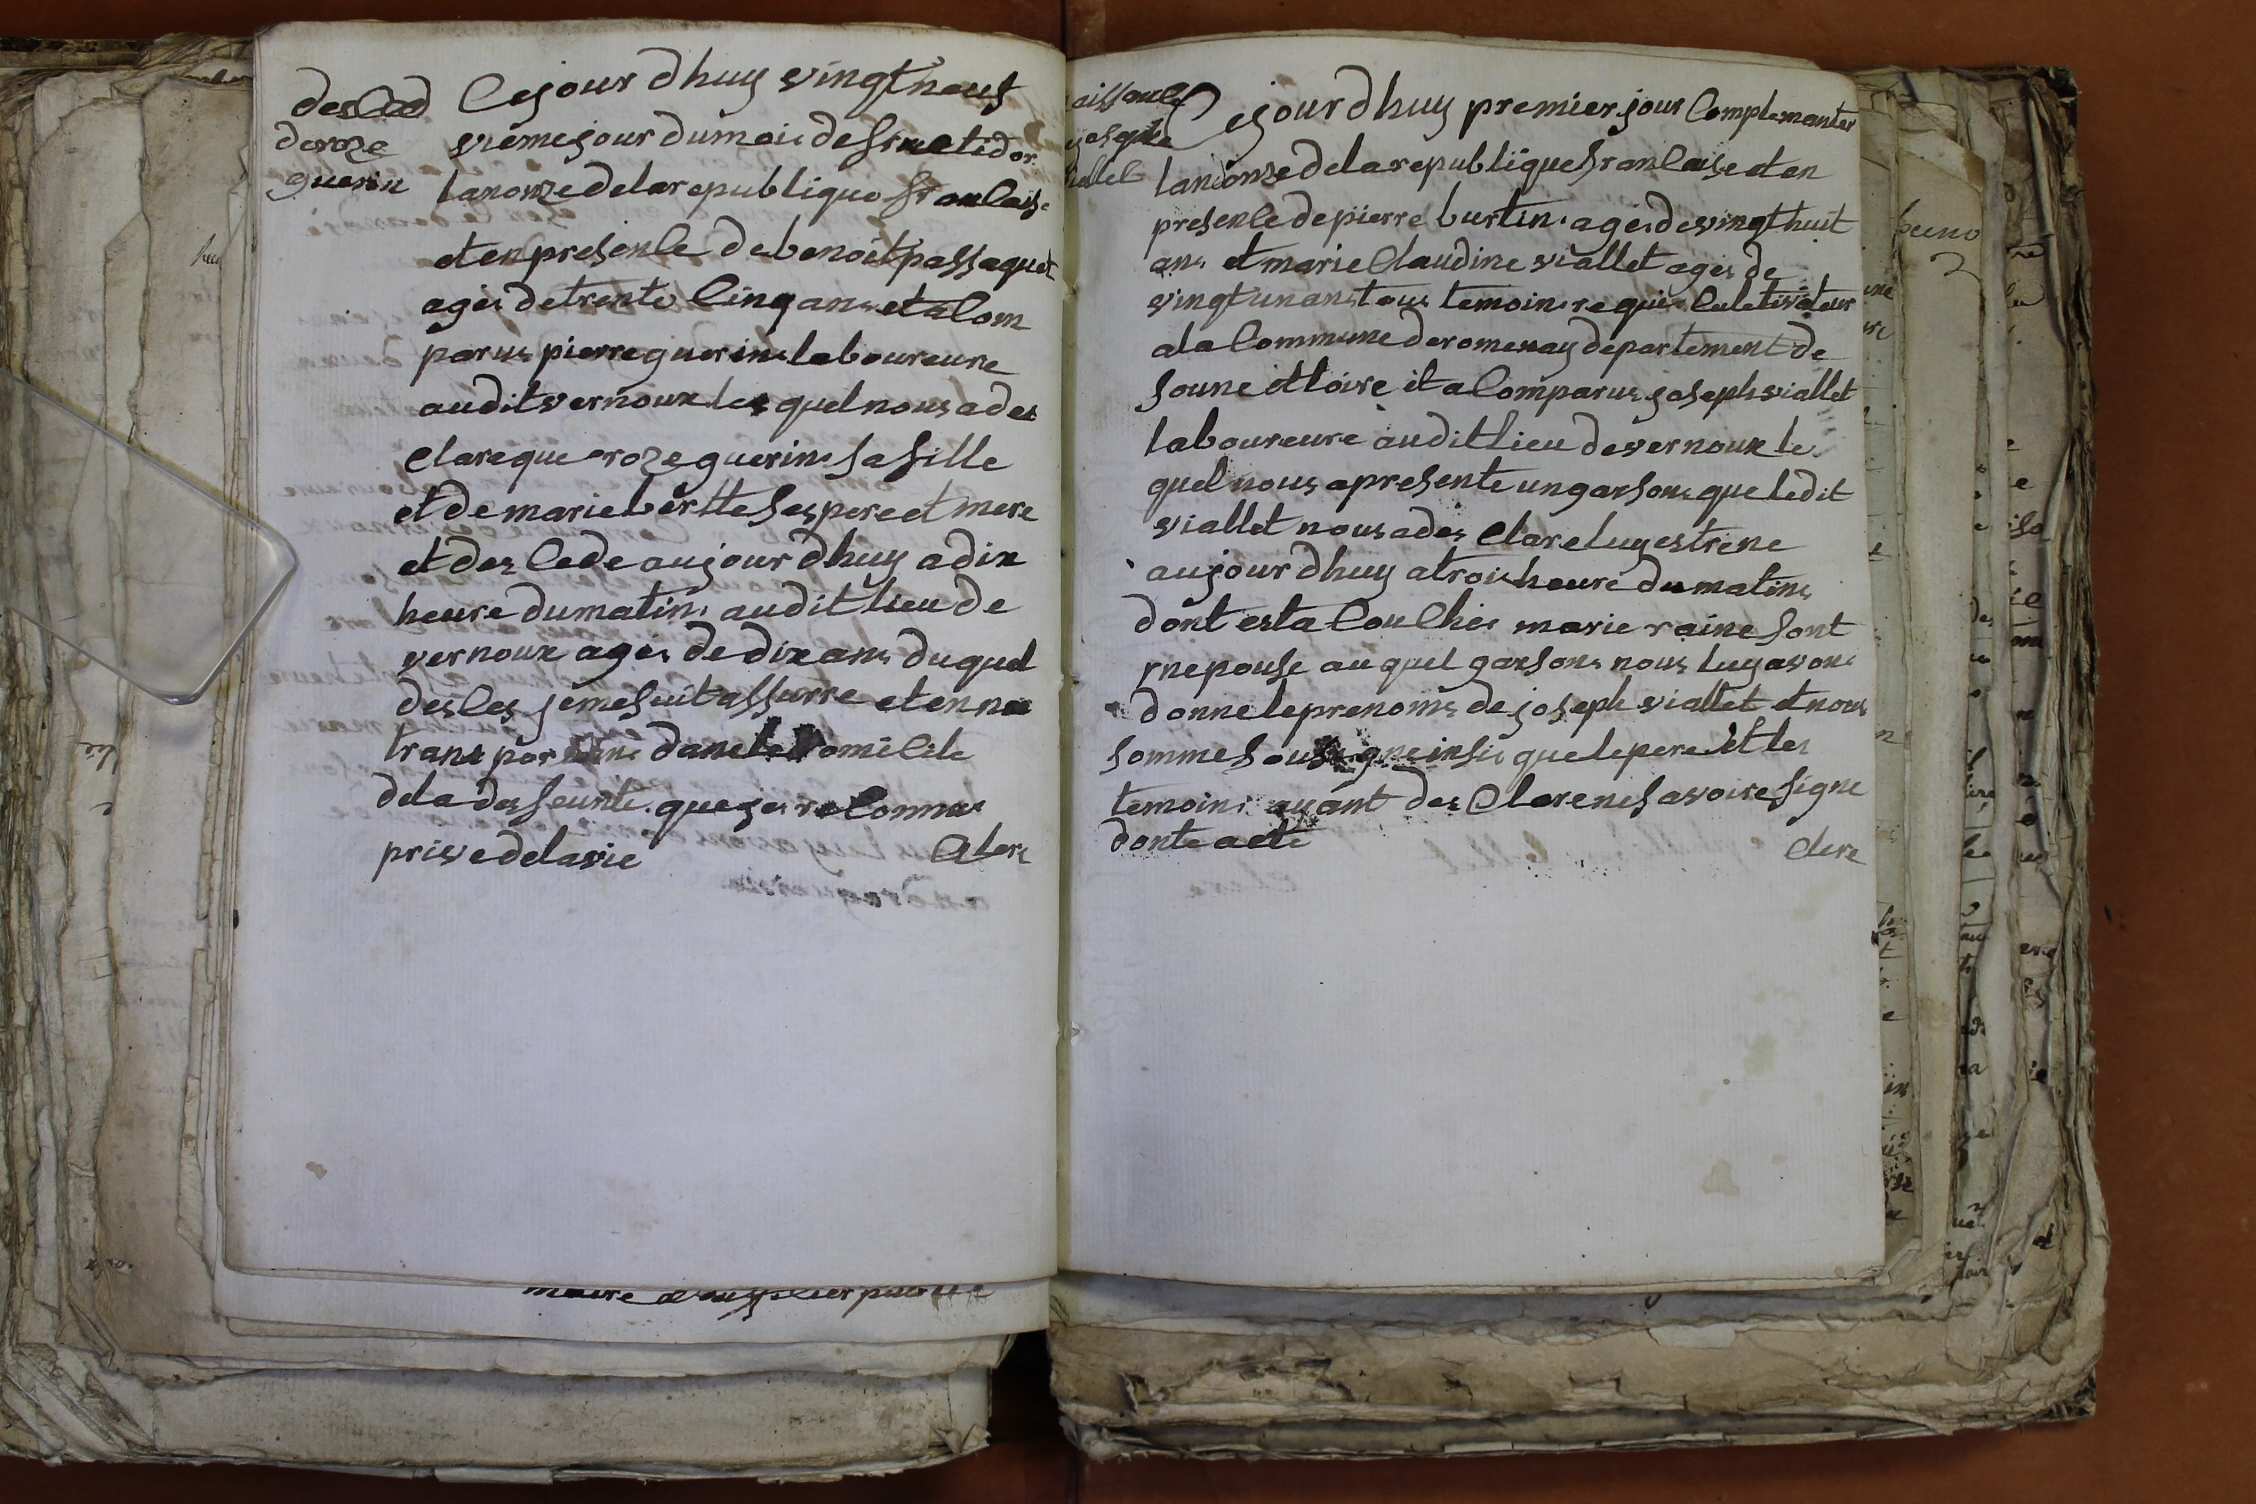 de roze
guerin
Cejour dhuy vingt neuf
vieme jour du mois de fructidor
lanonze de la republique francaise
et en presence de benoit passaquet
agés de trente cinq ans et a com
parus pierre guerins laboureure
audit vernoux les quel nous a des
clare que roze guerins sa fille
et de marie bertte ses pere et mere
et des cede aujour dhuy a dix
heure du matins audit lieu de
vernoux agés de dix ans du quel
desces jeme suit assurre et en ne
trans por dans le domicile
de la des funte que jes reconnus
prive de la vie
Clere
aissance
joseph
viallet
Cejour dhuy premier jour complemanter
lan onze de la republique francaise et en
presence de pierre burtin agés de vingt huit
ans et marie claudine viallet agés de
vingt un ans tous temoins requis culetivateur
a la commune de romenay departement de
soune et loire il a comparus joseph viallet
laboureure audit lieu de vernoux le
quel nous apresente un garsons que ledit
viallet nous a des clare luy estre ne
aujour dhuy a trois heure du matins
dont esta couchée marie raine sont
nepouse au quel garsons nous luy avons
donne le prenoms de joseph viallet et nous
somme sousigne insis que le pere et les
temoins ayant des clare ne savoire signe
dont acte
Clere
maire